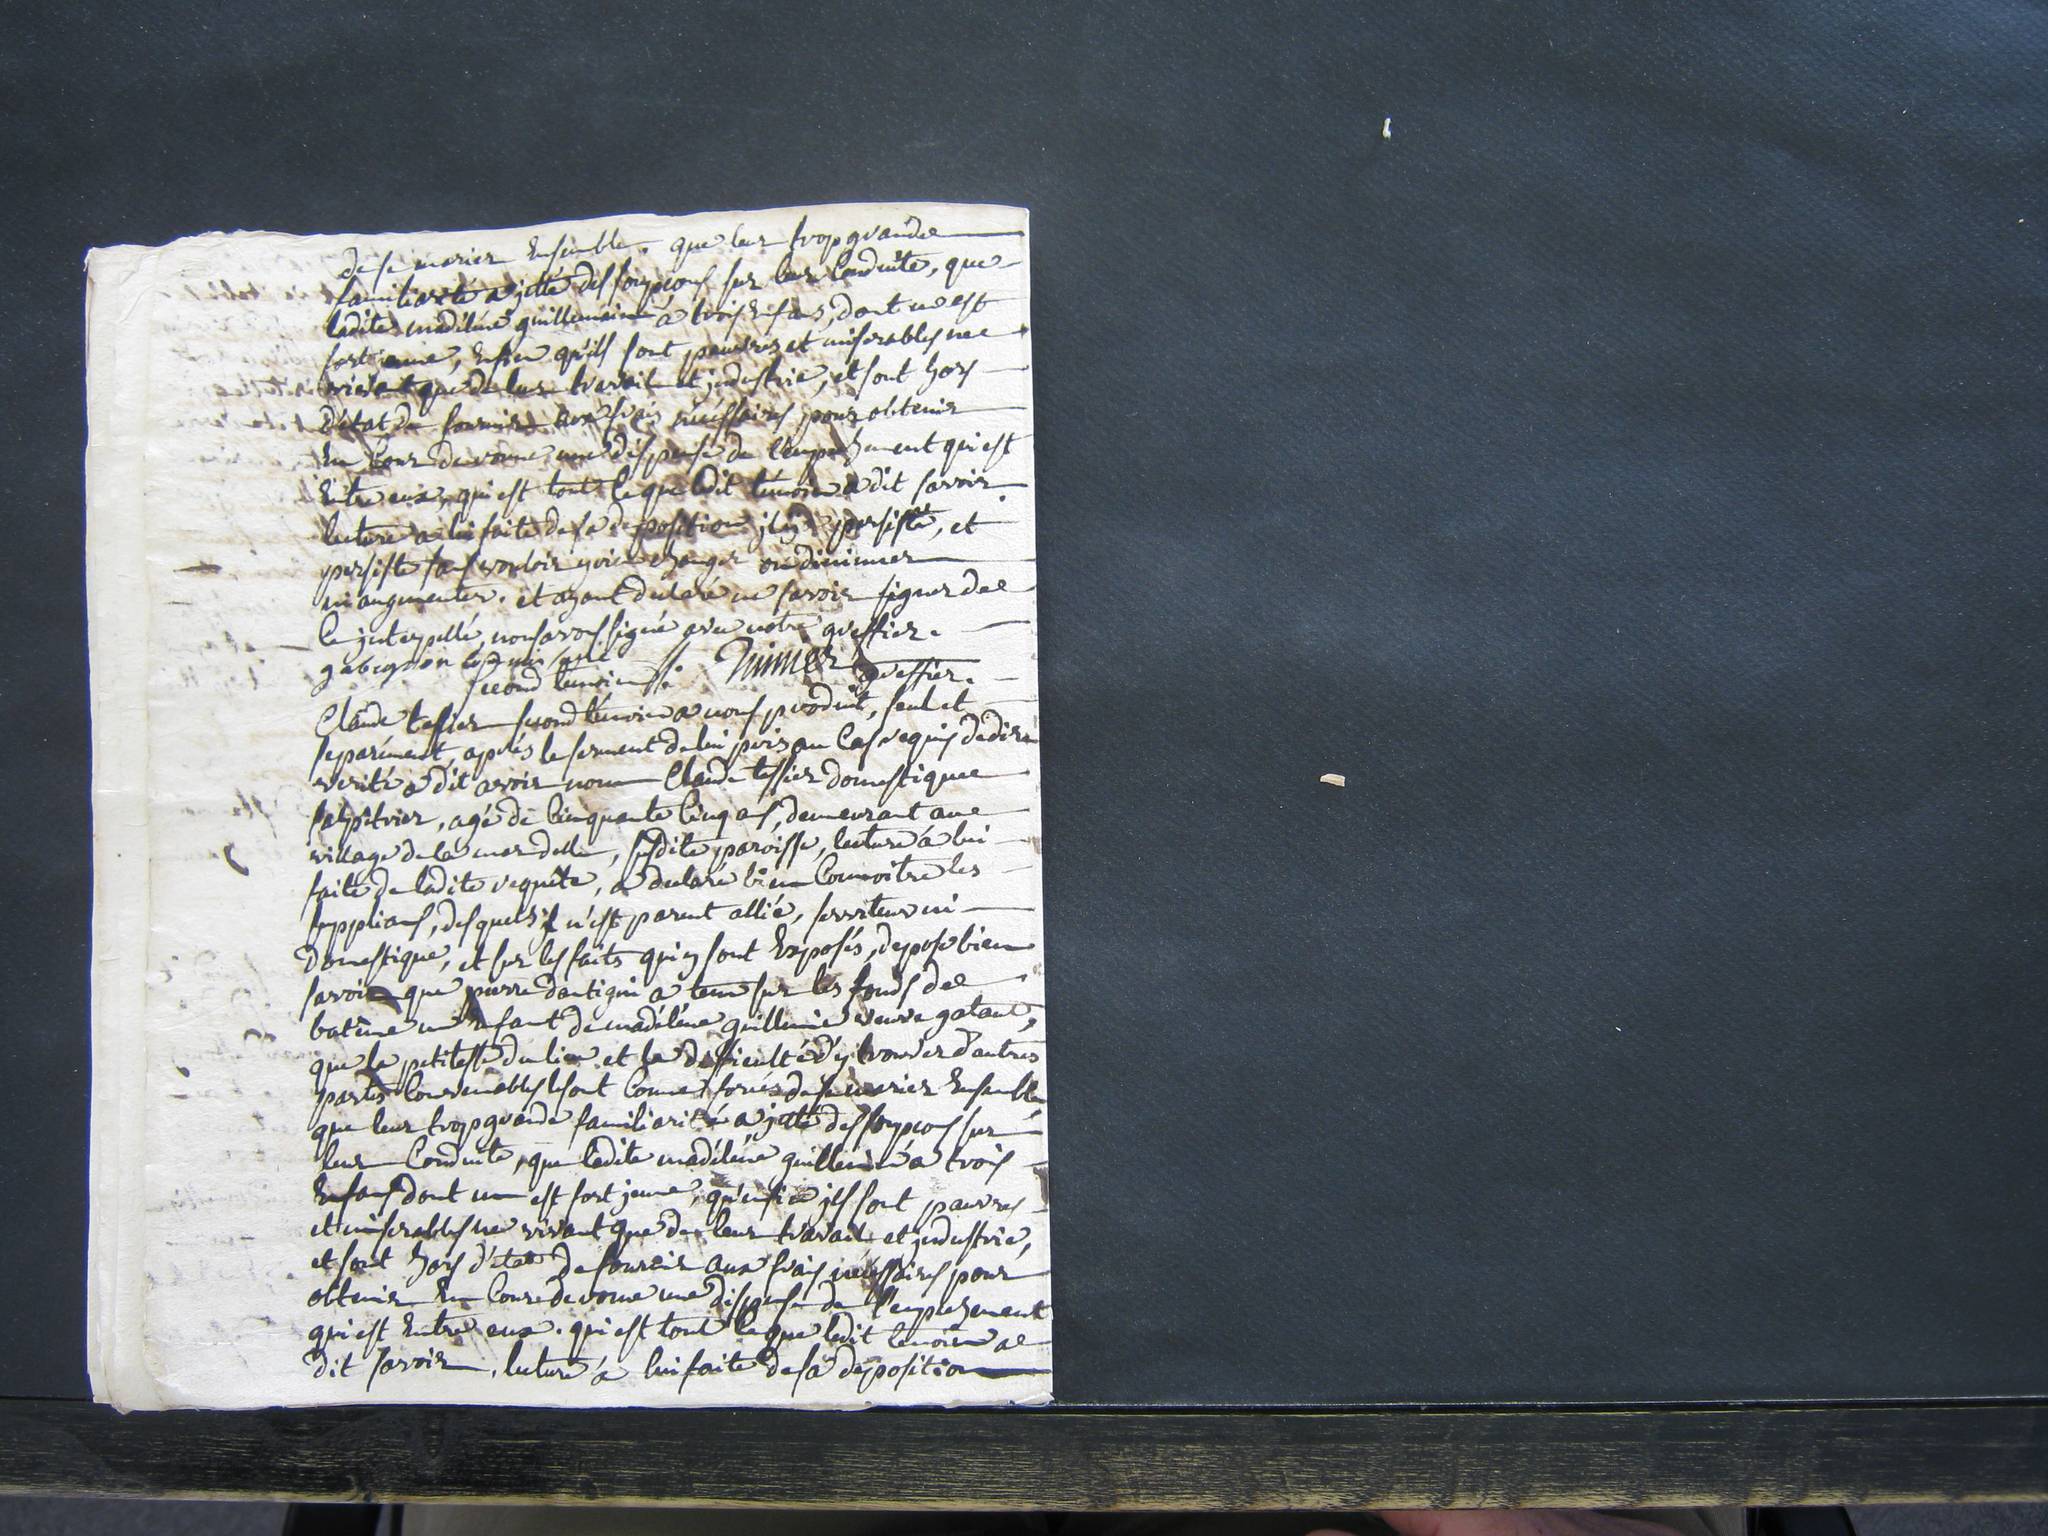 de se marier Ensemble. que leur trop grande
familiarité a jetté des soupçons sur leur Conduite, que
ladite madéléne guillemine à trois Enfans, dont un est
fort jeune, Enfin qu'ils sont pauvres et miserables ne
vivant que de leur travail et jndustrie, et sont hors
d'état de fournir aux frais nécéssaires pour obtenir
En Cour de rome une dispense de l'empechement qui est
Entre eux, qui est tout ce que ledit témoin a dit savoir
lecture a lui faite de sa deposition jl y a persisté, et
persiste sans vouloir y rien changer ou diminuer
ni augmenter. et ayant declaré ne savoir signer de
Ce jnterpellé, nous avons signé avec notre greffier.
greffier.
second temoin
Claude tessier second témoin a nous produit, seul et
separément, aprés le serment de lui pris au Cas requis de dire
verité a dit avoir nom Claude tessier domestique
salpétrier, agé de Cinquante Cinq ans, demeurant au
village de la mardelle, susdite paroisse, lecture à lui
faite de ladite requête, a declaré bien Connoitre les
supplians, desquels il n'est parent allié, serviteur ni
Domestique, et sur les faits qui y sont Exposés, depose bien
savoir que pierre dantigni a tenu sur les fonds de
batême un Enfant de madéléne guillemine veuve galant,
que la petitesse du lieu et la difficulté d'y trouver d'autres
partis Convenables sont Comme forcés de se marier Ensemble,
que leur trop grande familiarité a jetté des soupçons sur
leur Conduite, que ladite madéléne guillemine a trois
Enfans dont un est fort jeune, qu'enfin jls sont pauvres
et miserables ne vivant que de leur travail et jndustrie,
et sont hors d'état de fournir aux frais nécéssaires pour
obtenir En Cour de rome une dispense de l'empechement
qui est Entre eux. qui est tout ce que ledit temoin a
dit savoir, lecture à lui faite de sa deposition